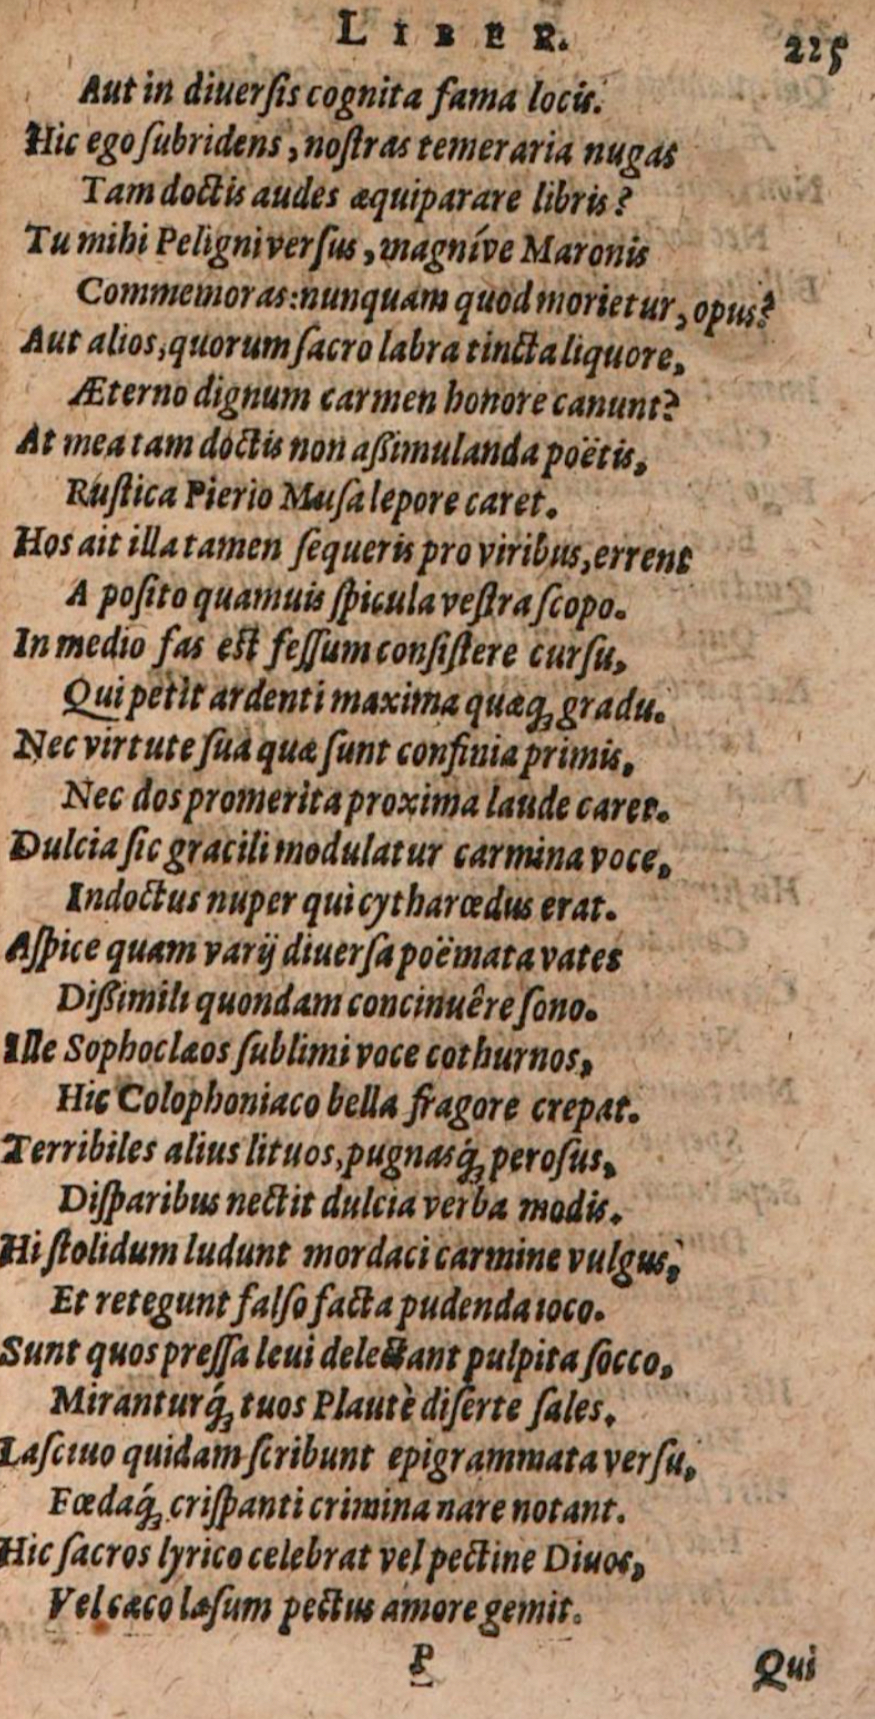 LIBER. 225
Aut in diuerſis cognita fama locis.
Hic ego ſubridens, noſtras temeraria nugas
Tam doctis audes æquiparare libris?
Tu mihi Peligni verſus, magníve Maronis
Commemoras: nunquam quod morietur, opus?
Aut alios, quorum ſacro labra tincta liquore,
Æterno dignum carmen honore canunt?
At mea tam doctis non aßimulanda poëtis,
Ruſtica Pierio Muſa lepore caret.
Hos ait illa tamen ſequeris pro viribus, errent
A poſito quamuis ſpicula veſtra ſcopo.
In medio fas est feſſum conſiſtere curſu,
Qui petit ardenti maxima quæq; gradu.
Nec virtute ſua quæ ſunt confinia primis,
Nec dos promerita proxima laude caret.
Dulcia ſic gracili modulatur carmina voce,
Indoctus nuper qui cytharœdus erat.
Aſpice quam varij diuerſa poëmata vates
Dißimili quondam concinuêre ſono.
Ille Sophoclæos ſublimi voce cothurnos,
Hic Colophoniaco bella fragore crepat.
Terribiles alius lituos, pugnasq́; peroſus,
Diſparibus nectit dulcia verba modis.
Hi ſtolidum ludunt mordaci carmine vulgus,
Et retegunt falſo facta pudenda ioco.
Sunt quos preſſa leui delectant pulpita ſocco,
Miranturq́; tuos Plautè diſerte ſales.
Laſciuo quidam ſcribunt epigrammata verſu,
Fœdaq́; criſpanti crimina nare notant.
Hic ſacros lyrico celebrat vel pectine Diuos,
Vel cæco læſum pectus amore gemit.
P Qui